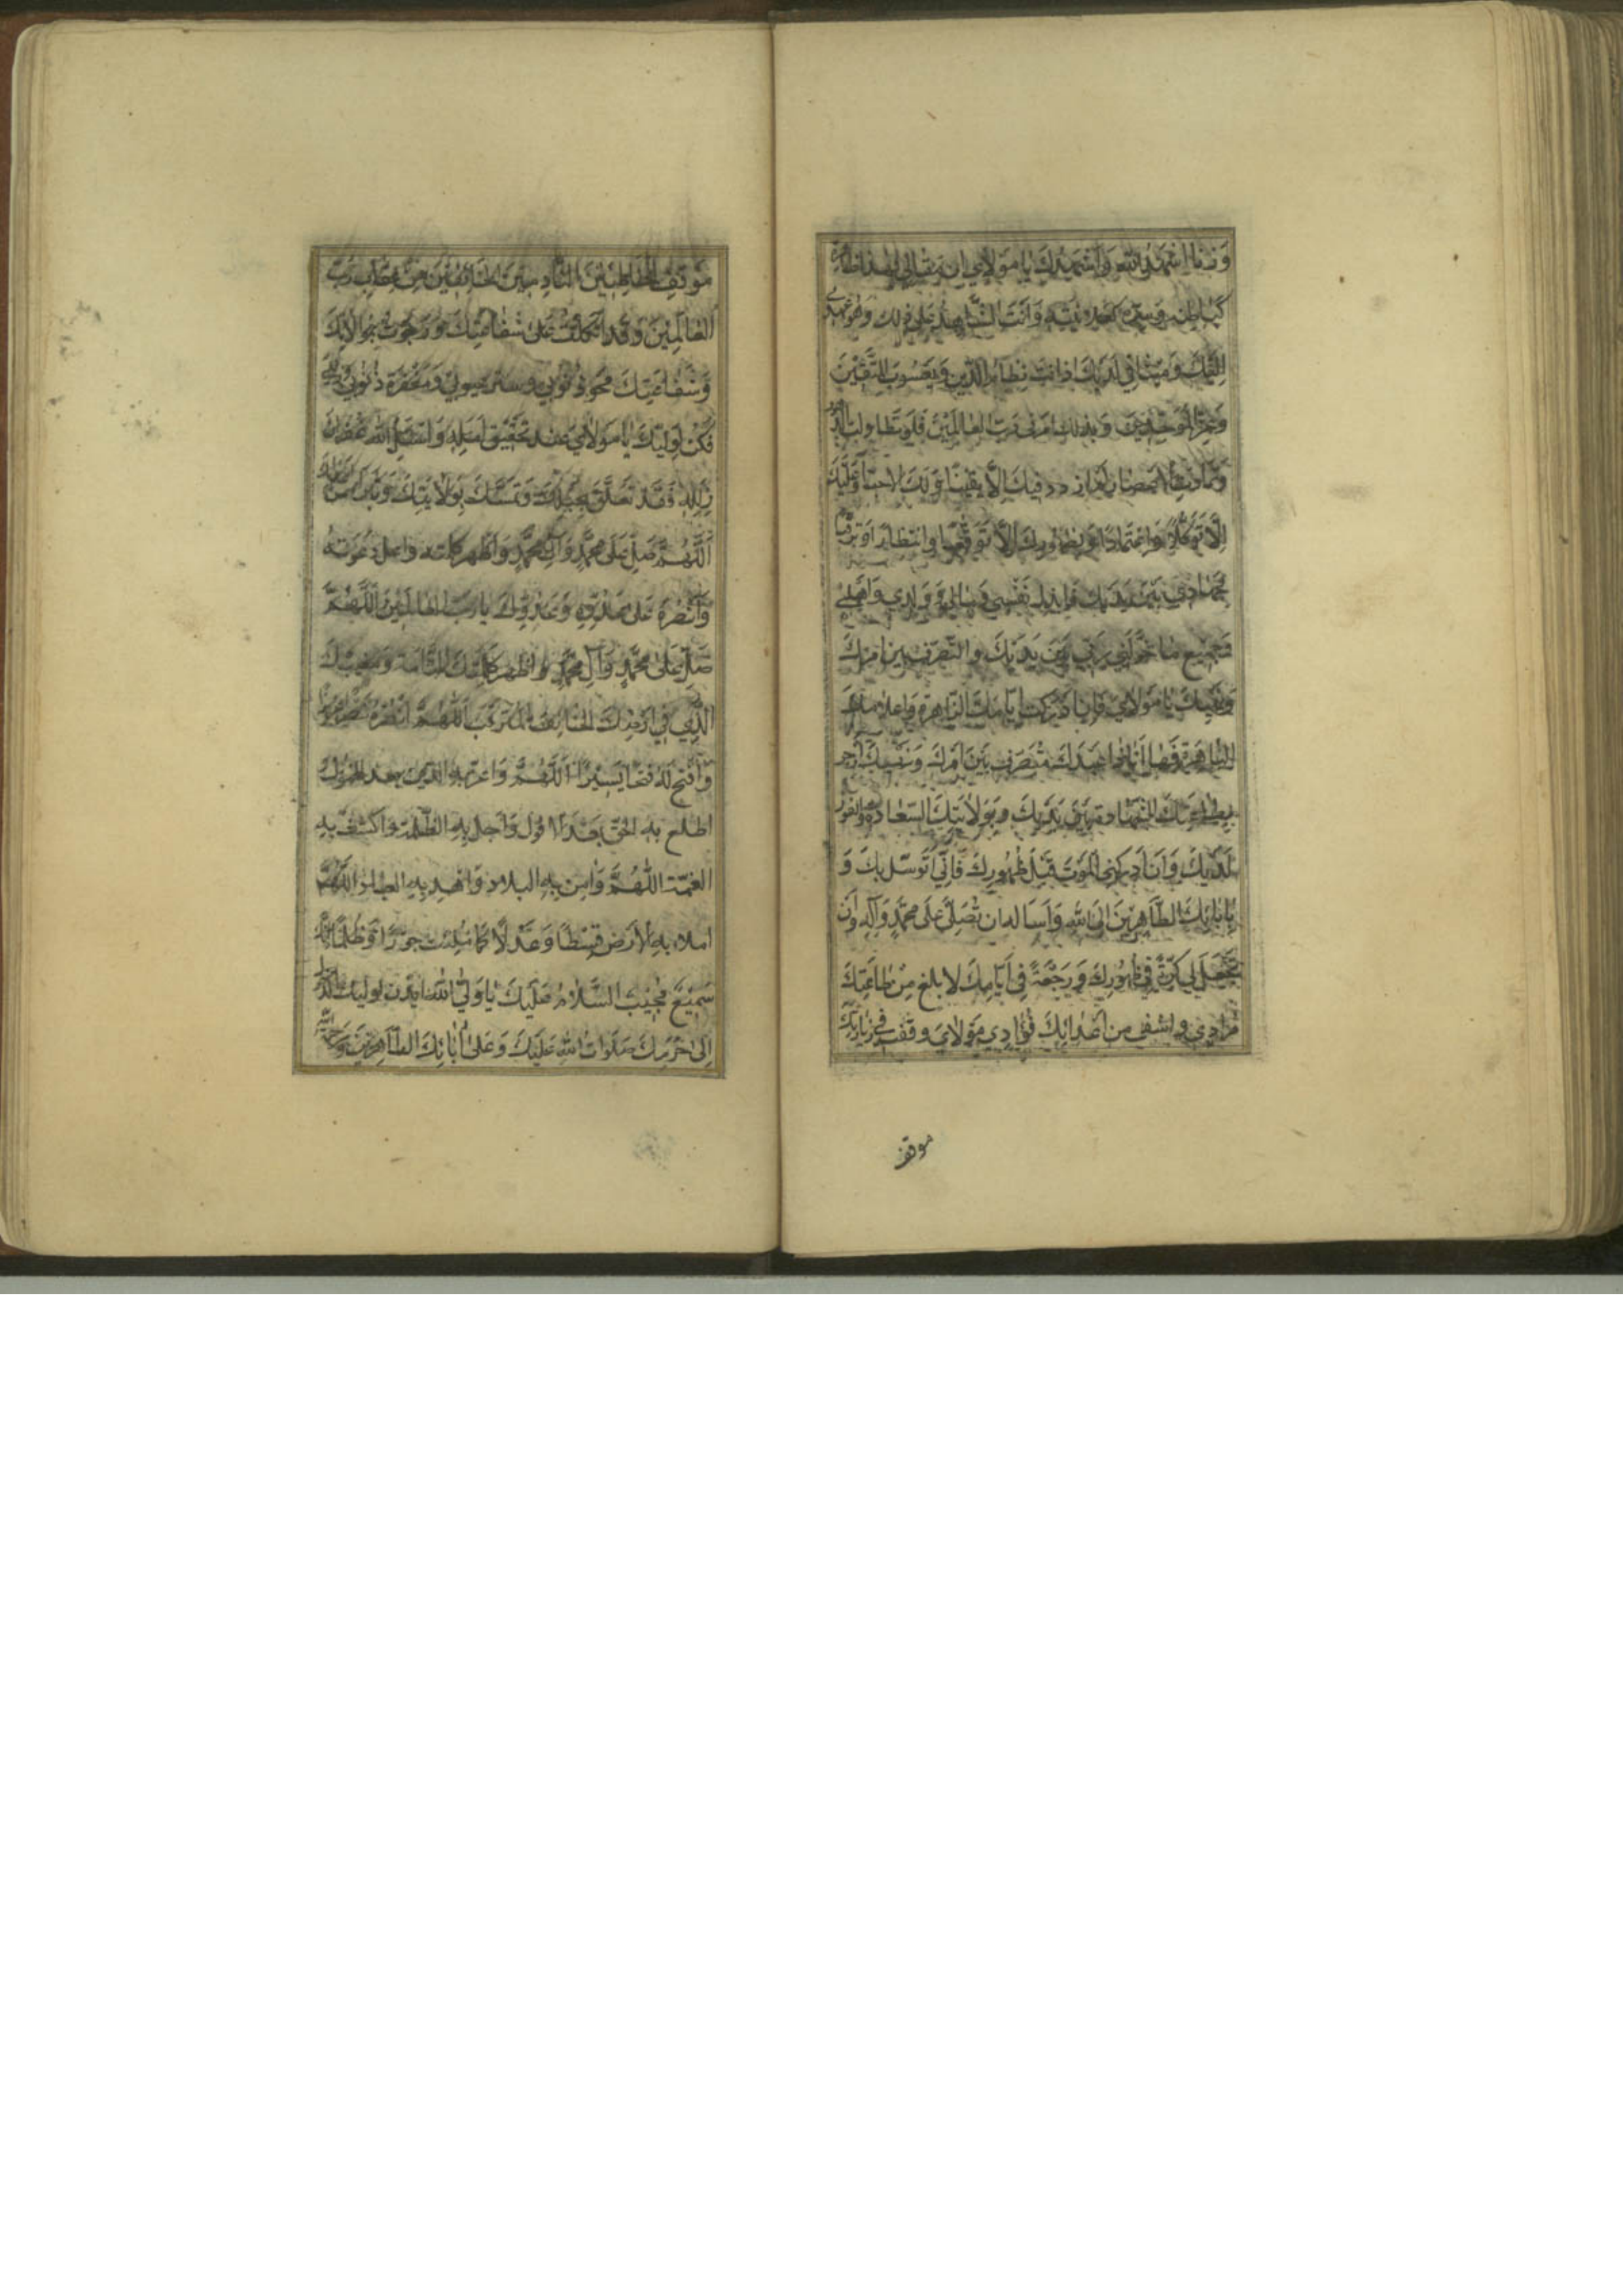 اشهد الله واشهدك يا مولاي ان مقالي هذا ظاهره
كباطنه وسره كعلانيته وانت الشاهد على ذلك وهو عهدي
اليك وميثاقي لديك اذ انت نظام الدين ويعسوب المتقين
وعز الموحدين وبذلك امرني رب العالمين فلو تطاولت الدهور
وتمادت الاعمار لم ازدد فيك الا يقينا ولك الا حبا وعليك
الا توكلا واعتمادا وبظهورك الا توقعا وانتظارا وترقبا
لجهادي بين يديك فابذل نفسي ومالي وولدي واهلي
وجميع ما خولني ربي بين يديك والتصرف بين امرك
ونهيك يا مولاي فان ادركت ايامك الزاهرة واعلامك
الباهرة فها انا ذا عبدك متصرف بين امرك ونهيك ارجو
بطاعتك الشهادة بين يديك وبولايتك السعادة والفوز
لديك وان ادركني الموت قبل ظهورك فاني اتوسل بك و
بابائك الطاهرين الى الله واساله ان تصلي على محمد وآله وان
يجعل لي كرة في ظهورك ورجعة في ايامك لابلغ من طاعتك
مرادي واشفي من اعدائك فؤادي مولاي وقفت في زيارتك
موقف
موقف الخاطئين النادمين الخائفين من عقاب رب
العالمين وقد اتكلت على شفاعتك ورجوت بموالاتك
وشفاعتك محو ذنوبي وستر عيوبي ومغفرة ذنوبي
فكن لوليك يا مولاي عند تحقيق امله واسئل الله غفران
زلله فقد تعلق بحبلك وتمسك بولايتك وتبرا من
اللهم صل على محمد وآل محمد واظهر كلمته واعل دعوته
وانصره على عدوه وعدوك يا رب العالمين اللهم
صل على محمد وآل محمد واظهر كلمتك التامة ومغيبك
الذي في ارضك الخائف المترقب اللهم انصره نصرا عزيزا
وافتح له فتحا يسيرا اللهم واعز به الدين بعد الخمول
اطلع به الحق بعد الافول واجل به الظلمة واكشف به
الغمة اللهم وامن به البلاد واهد به العباد اللهم
املاء به الارض قسطا وعدلا كما ملئت جورا وظلما
سميع مجيب السلام عليك يا ولي الله ايذن لوليك الدخول
الى حرمك صلوات الله عليك وعلى آبائك الطاهرين ورحمة الله